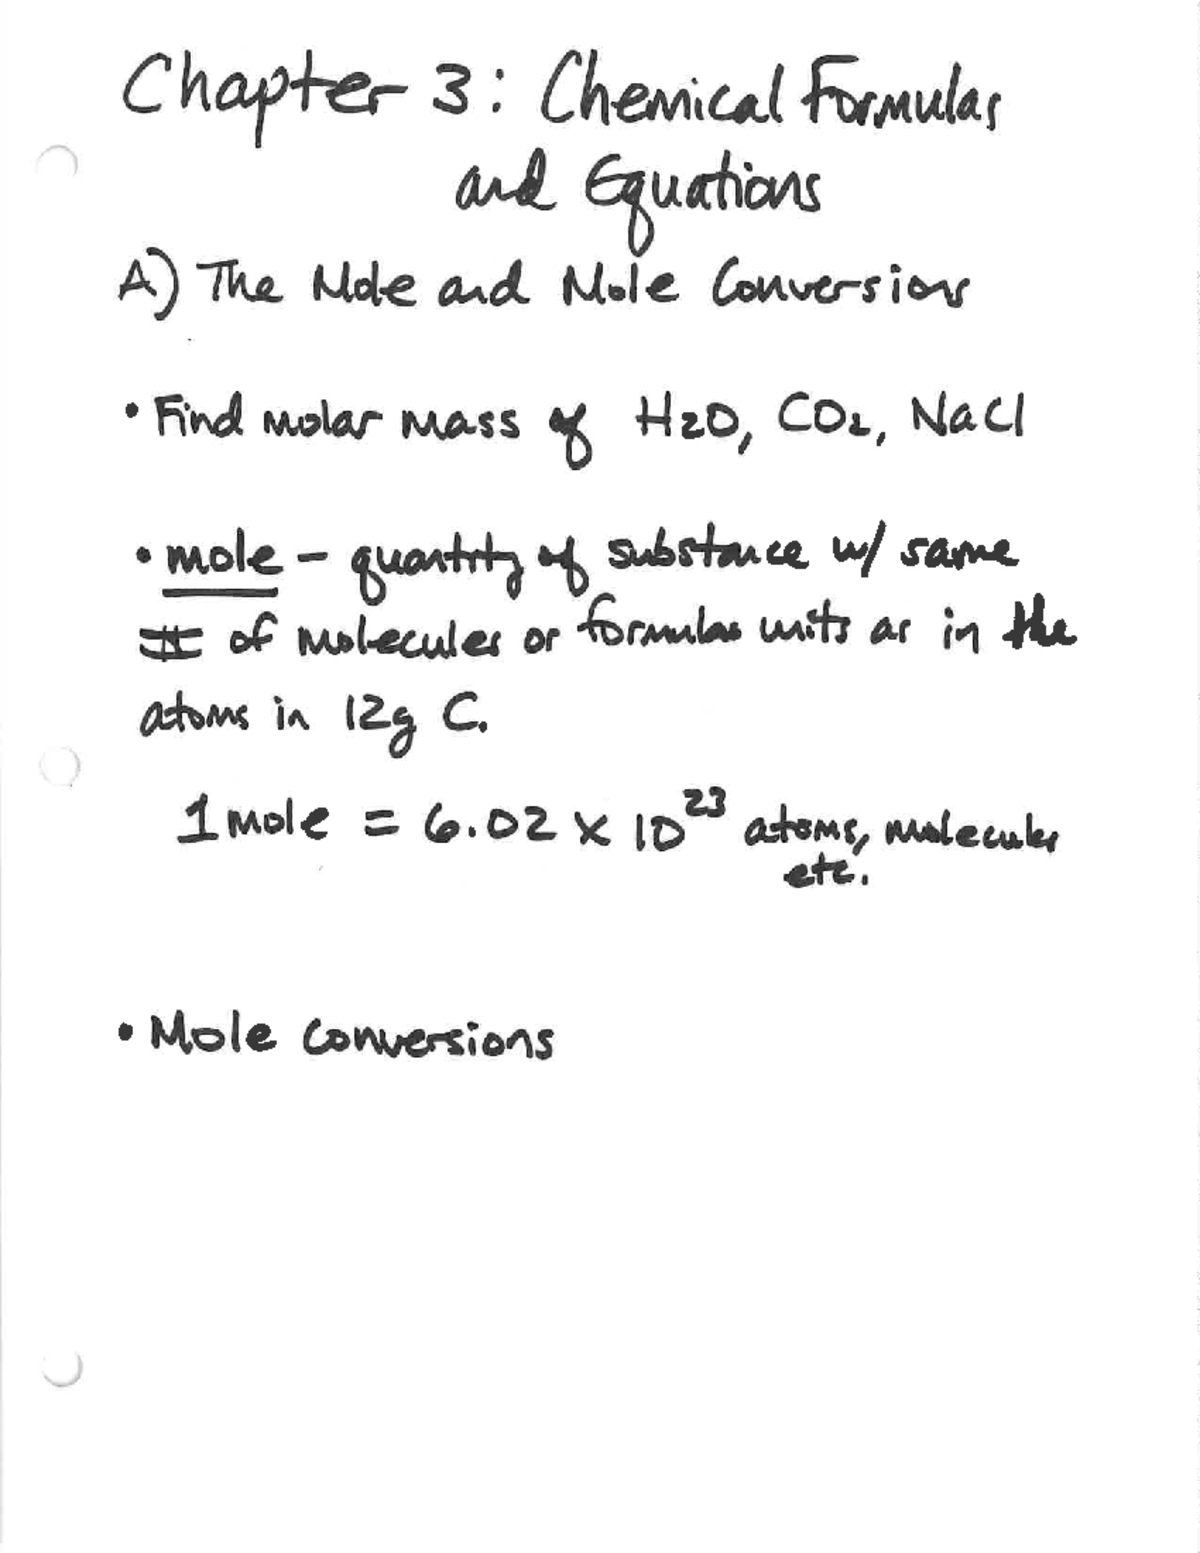 Chapter 3: Chemical Formulas
and Equations
A) The Mole and Mole Conversions
• Find molar mass of H2O, CO2, NaCl
• mole - quantity of substance w/ same
# of molecules or formulas units as in the
atoms in 12g C.
1 mole = 6.02 x 10²³ atoms, molecules
etc.
• Mole conversions